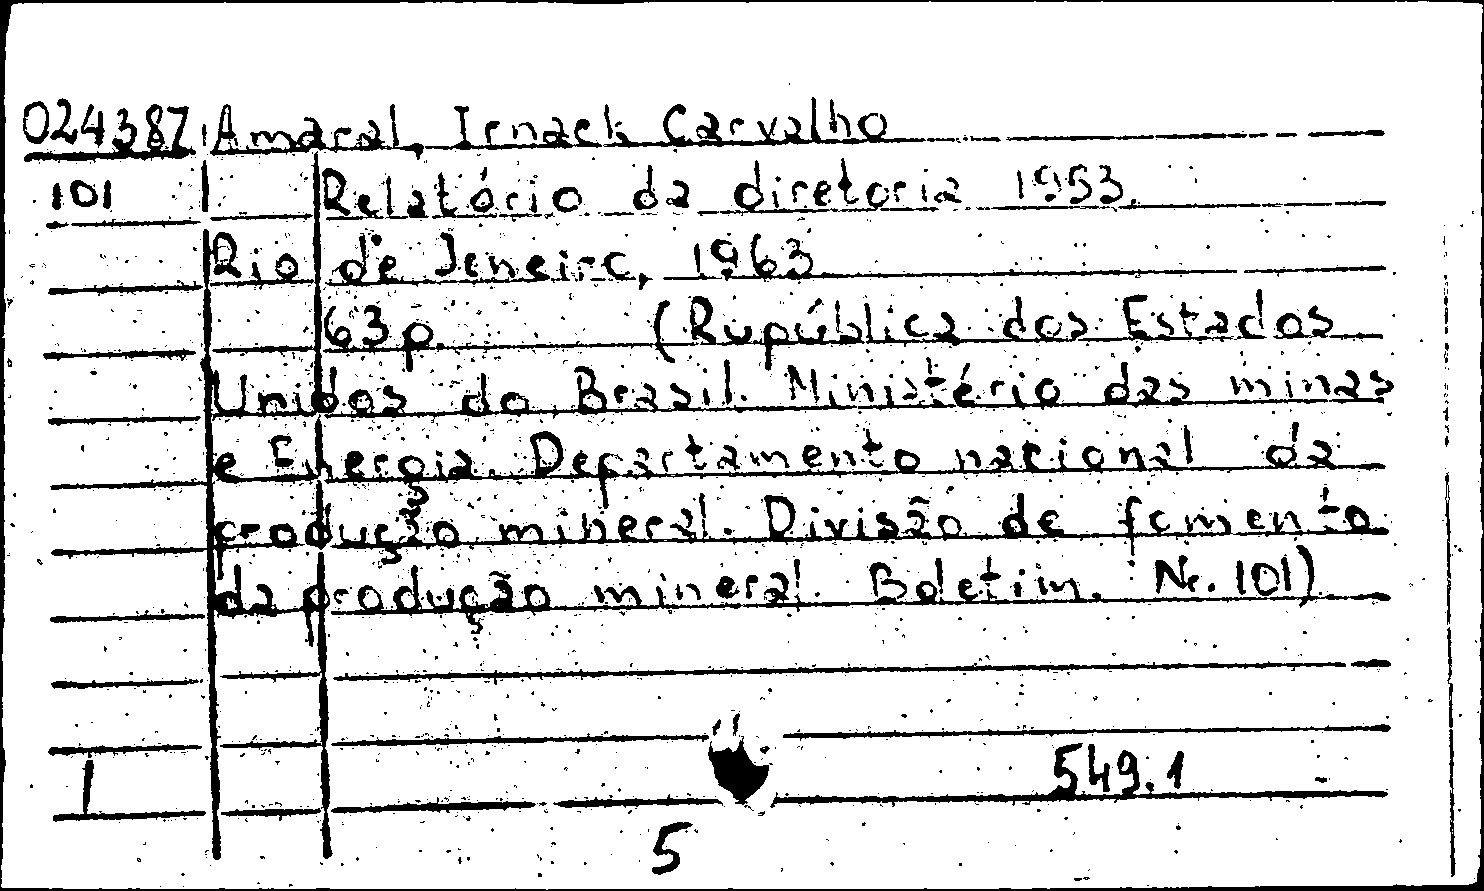 02438Z Amaral, Irnack Carvalho
101 Relatório da diretoria 1953.
Rio de Janeiro, 1963
63p. (Rupública dos Estados
Unidos do Brasil. Ministério das minas
e Energia. Departamento nacional da
produção mineral. Divisão de fomento
da produção mineral. Boletim. Nr. 101)
1 549.1
5